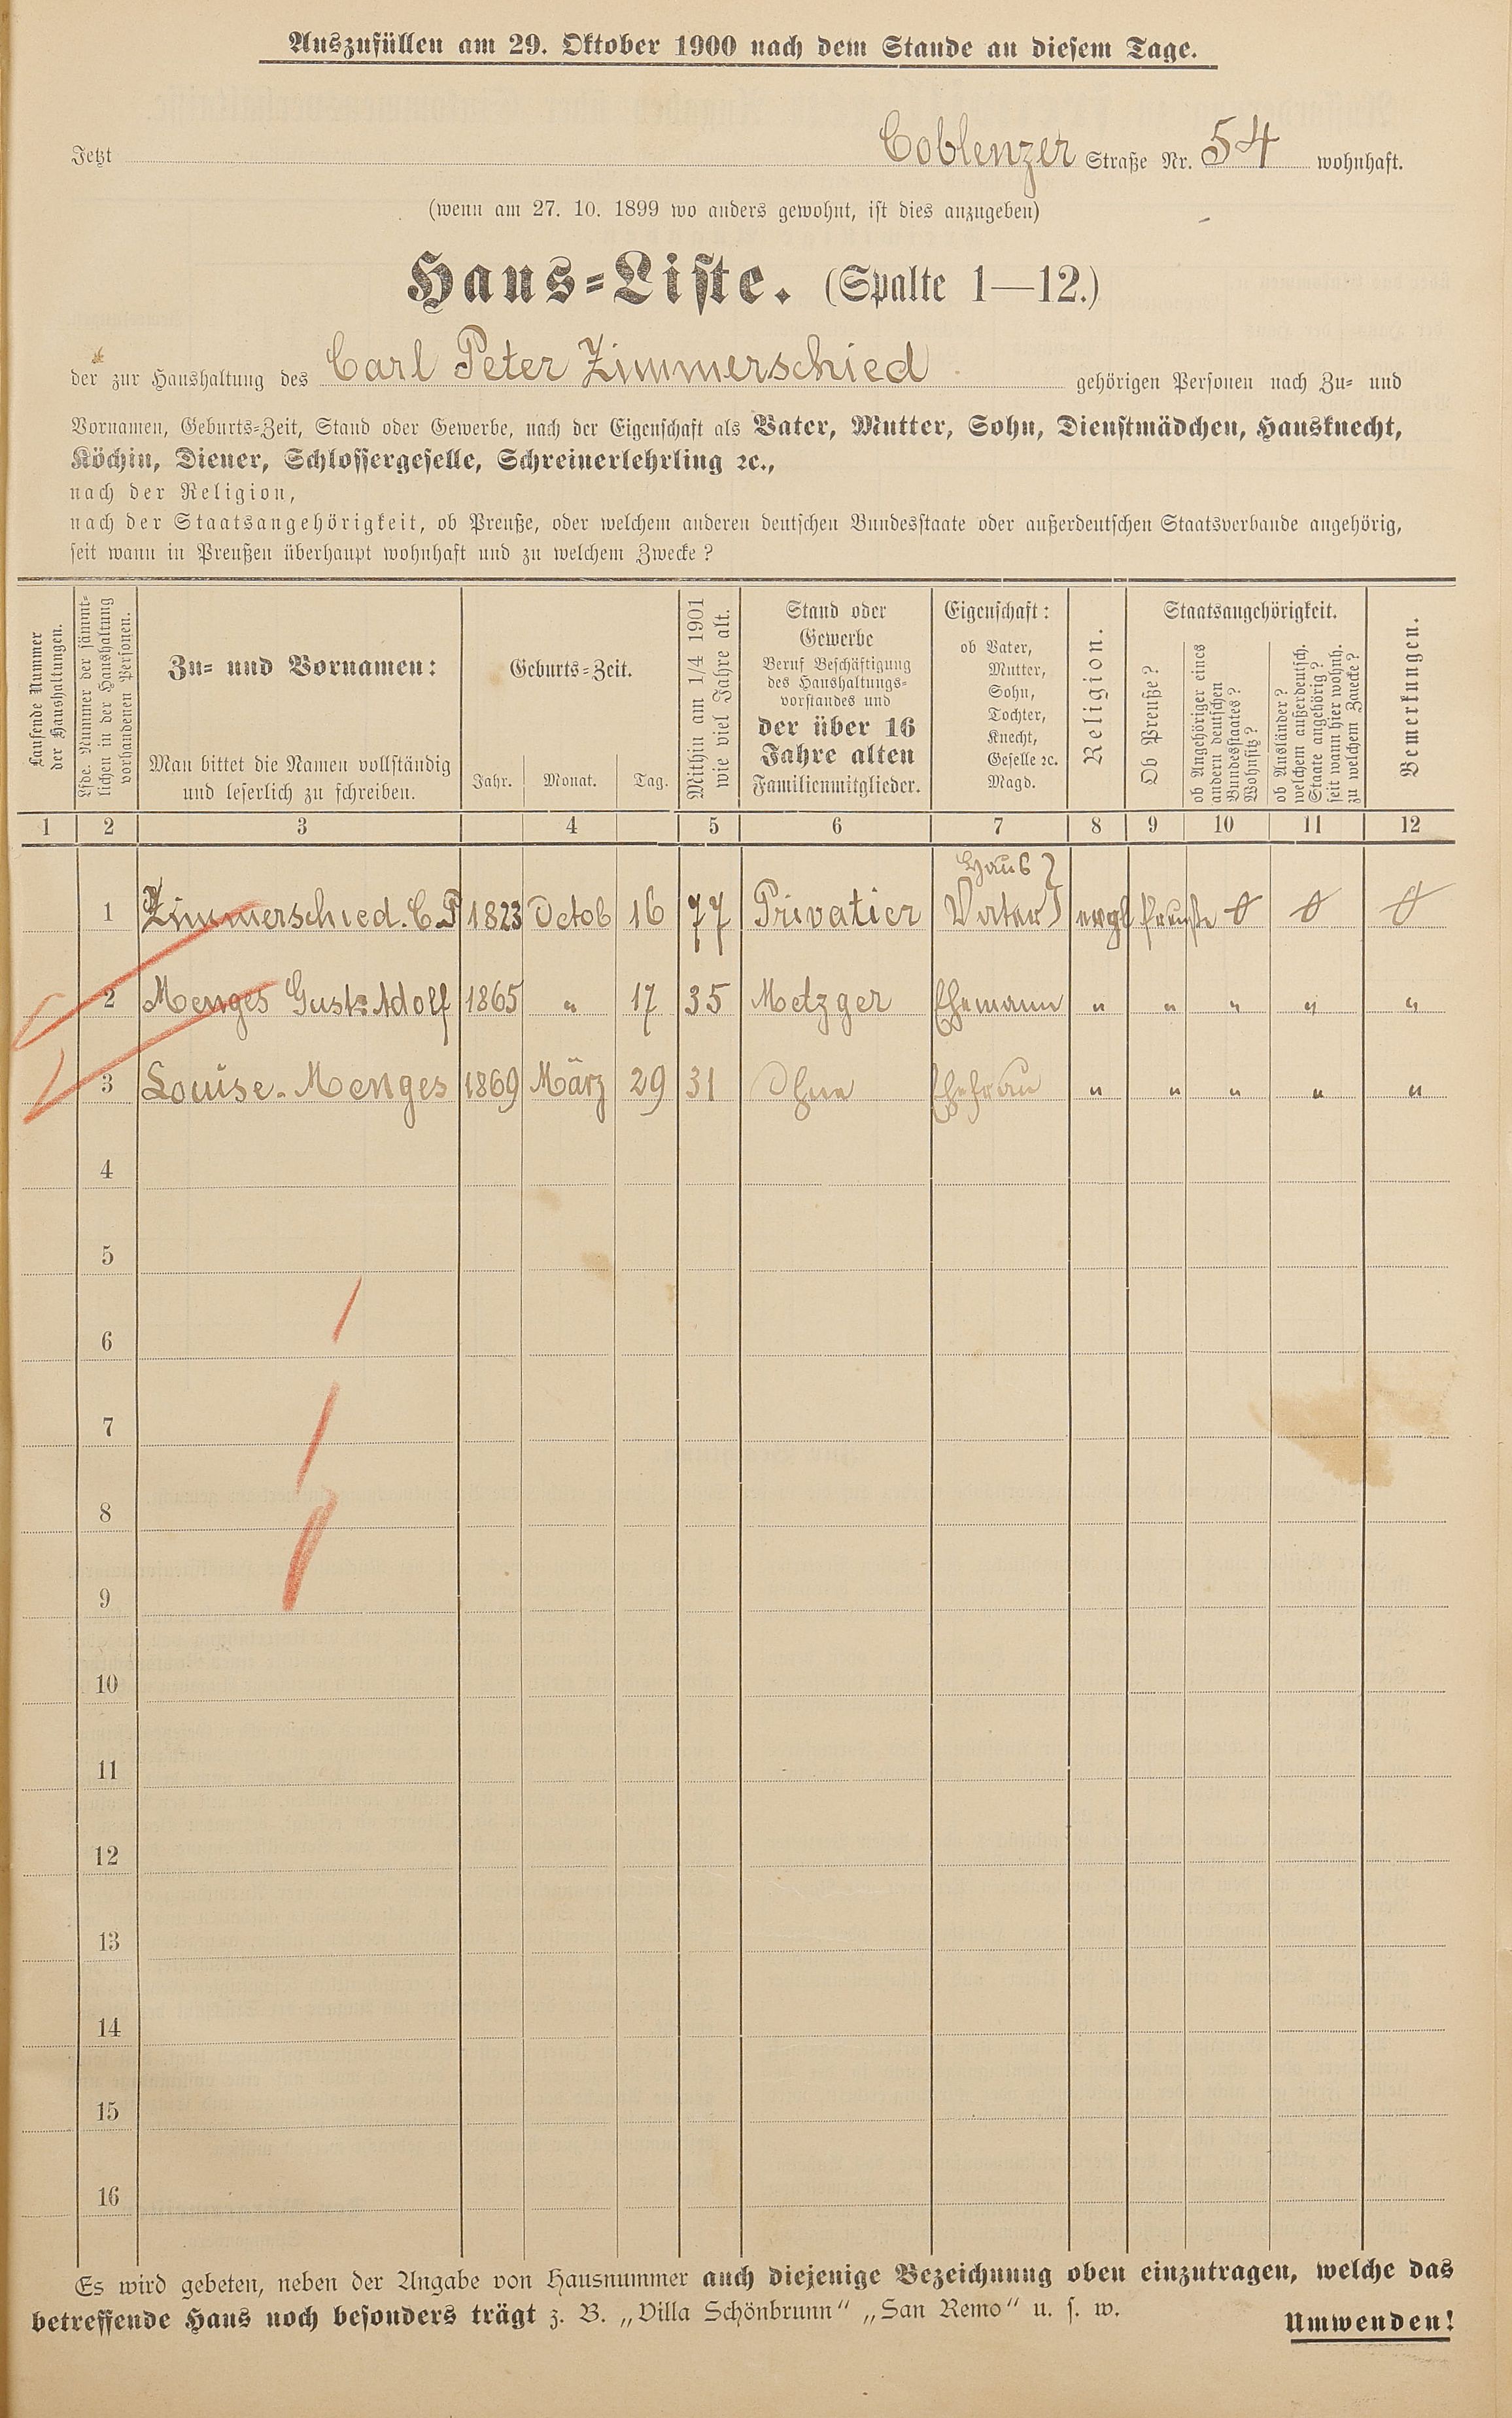 Auszufüllen am 29. Oktober 1900 nach dem Stande an diesem Tage.
Jetzt Coblenzer Straße Nr. 54 wohnhaft.
(wenn am 27. 10. 1899 wo anders gewohnt, ist dies anzugeben)
Haus=Liste. (Spalte 1—12.)
der zur Haushaltung des Carl Peter Zimmerschied gehörigen Personen nach Zu= und
Vornamen, Geburts=Zeit, Stand oder Gewerbe, nach der Eigenschaft als Vater, Mutter, Sohn, Dienstmädchen, Hausknecht,
Köchin, Diener, Schlossergeselle, Schreinerlehrling ꝛc.,
nach der Religion,
nach der Staatsangehörigkeit, ob Preuße, oder welchem anderen deutschen Bundesstaate oder außerdeutschen Staatsverbande angehörig,
seit wann in Preußen überhaupt wohnhaft und zu welchem Zwecke?
Laufende Nummer
der Haushaltungen.
Lfde. Nummer der sämmt=
lichen in der Haushaltung
vorhandenen Personen.
Zu= und Vornamen:
Man bittet die Namen vollständig
und leserlich zu schreiben.
Geburts=Zeit.
Jahr. Monat. Tag.
Mithin am 1/4 1901
wie viel Jahre alt.
Stand oder
Gewerbe
Beruf Beschäftigung
des Haushaltungs=
vorstandes und
der über 16
Jahre alten
Familienmitglieder.
Eigenschaft:
ob Vater,
Mutter,
Sohn,
Tochter,
Knecht,
Geselle ꝛc.
Magd.
Religion.
Staatsangehörigkeit.
Ob Preuße?
ob Angehöriger eines
andern deutschen
Bundesstaates?
Wohnsitz?
ob Ausländer?
welchem außerdeutsch.
Staate angehörig?
seit wann hier wohnh.
zu welchem Zwecke?
Bemerkungen.
1 2 3 4 5 6 7 8 9 10 11 12
Haus
1 Zimmerschied. C. P 1823 Octob 16 77 Privatier Vater evgl Preuße
2 Menges Gust. Adolf 1865 " 17 35 Metzger Ehemann " " " " "
3 Louise. Menges 1869 März 29 31 Ohne Ehefrau " " " " "
4
5
6
7
8
9
10
11
12
13
14
15
16
Es wird gebeten, neben der Angabe von Hausnummer auch diejenige Bezeichnung oben einzutragen, welche das
betreffende Haus noch besonders trägt z. B. „Villa Schönbrunn“ „San Remo“ u. s. w.
Umwenden!